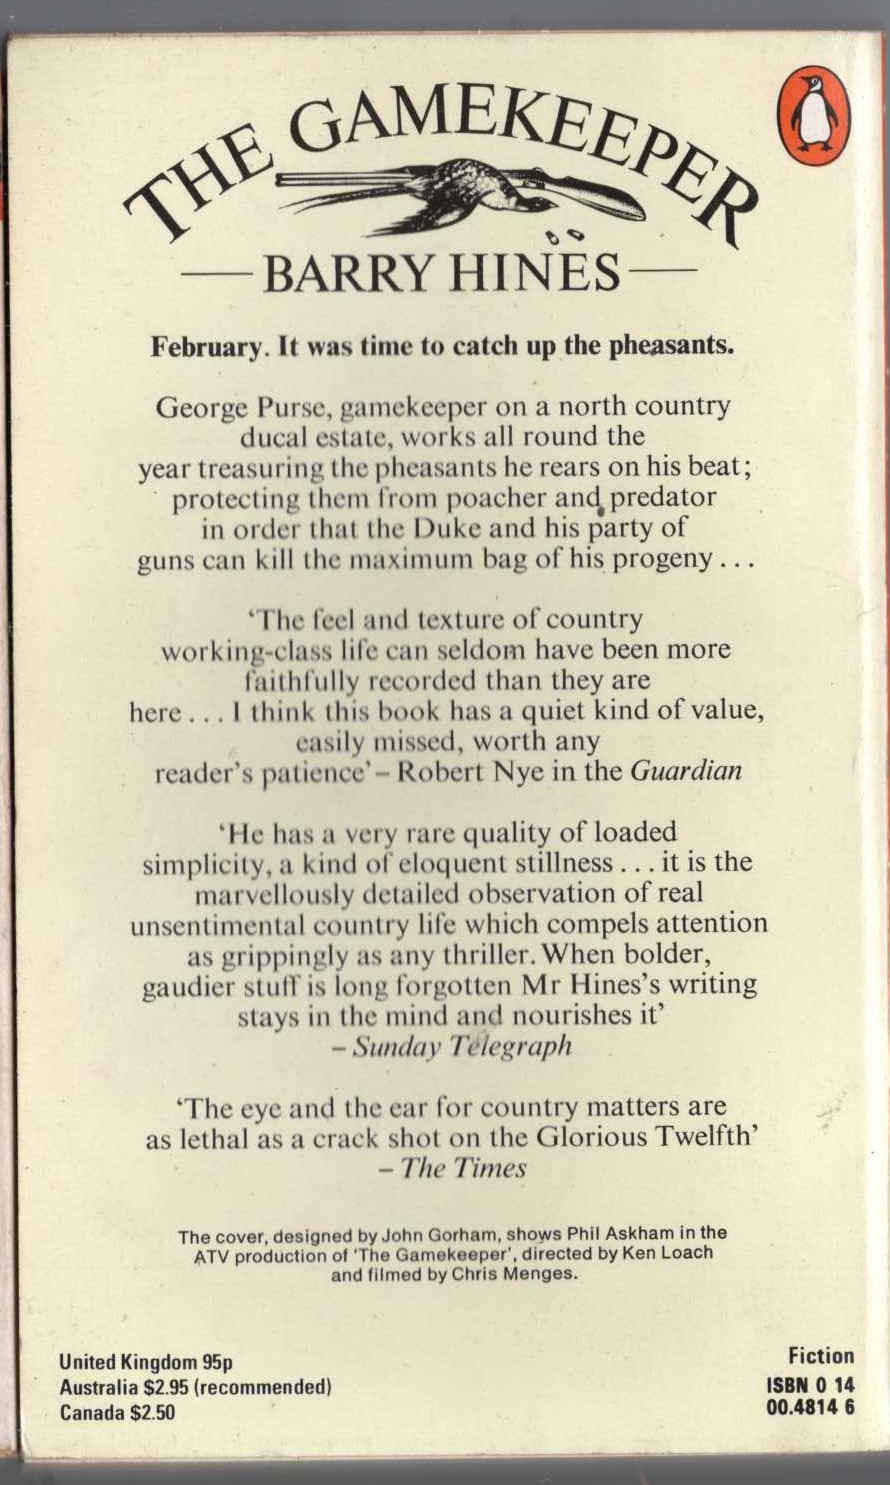 THE GAMEKEEPER
— BARRY HINES —
February. It was time to catch up the pheasants.
George Purse, gamekeeper on a north country
ducal estate, works all round the
year treasuring the pheasants he rears on his beat;
protecting them from poacher and predator
in order that the Duke and his party of
guns can kill the maximum bag of his progeny . . .
‘The feel and texture of country
working-class life can seldom have been more
faithfully recorded than they are
here . . . I think this book has a quiet kind of value,
easily missed, worth any
reader’s patience’ – Robert Nye in the Guardian
‘He has a very rare quality of loaded
simplicity, a kind of eloquent stillness . . . it is the
marvellously detailed observation of real
unsentimental country life which compels attention
as grippingly as any thriller. When bolder,
gaudier stuff is long forgotten Mr Hines’s writing
stays in the mind and nourishes it’
– Sunday Telegraph
‘The eye and the ear for country matters are
as lethal as a crack shot on the Glorious Twelfth’
– The Times
The cover, designed by John Gorham, shows Phil Askham in the
ATV production of ‘The Gamekeeper’, directed by Ken Loach
and filmed by Chris Menges.
United Kingdom 95p
Australia $2.95 (recommended)
Canada $2.50
Fiction
ISBN 0 14
00.4814 6